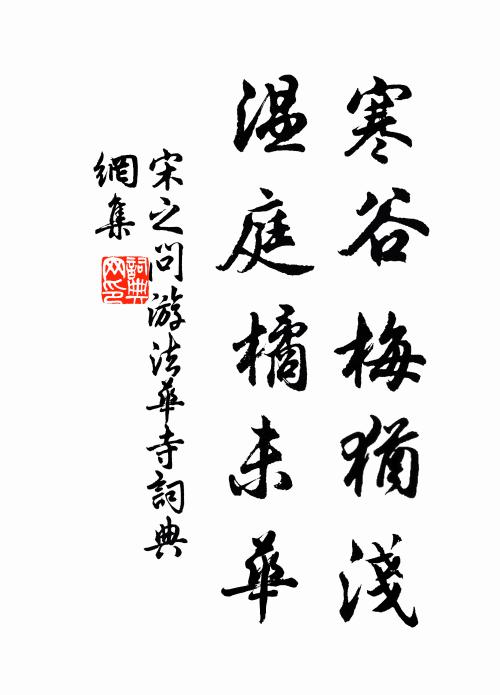 寒谷梅猶淺
温庭橘未華
宋之問游法華寺詞典
網集
詞典
网印